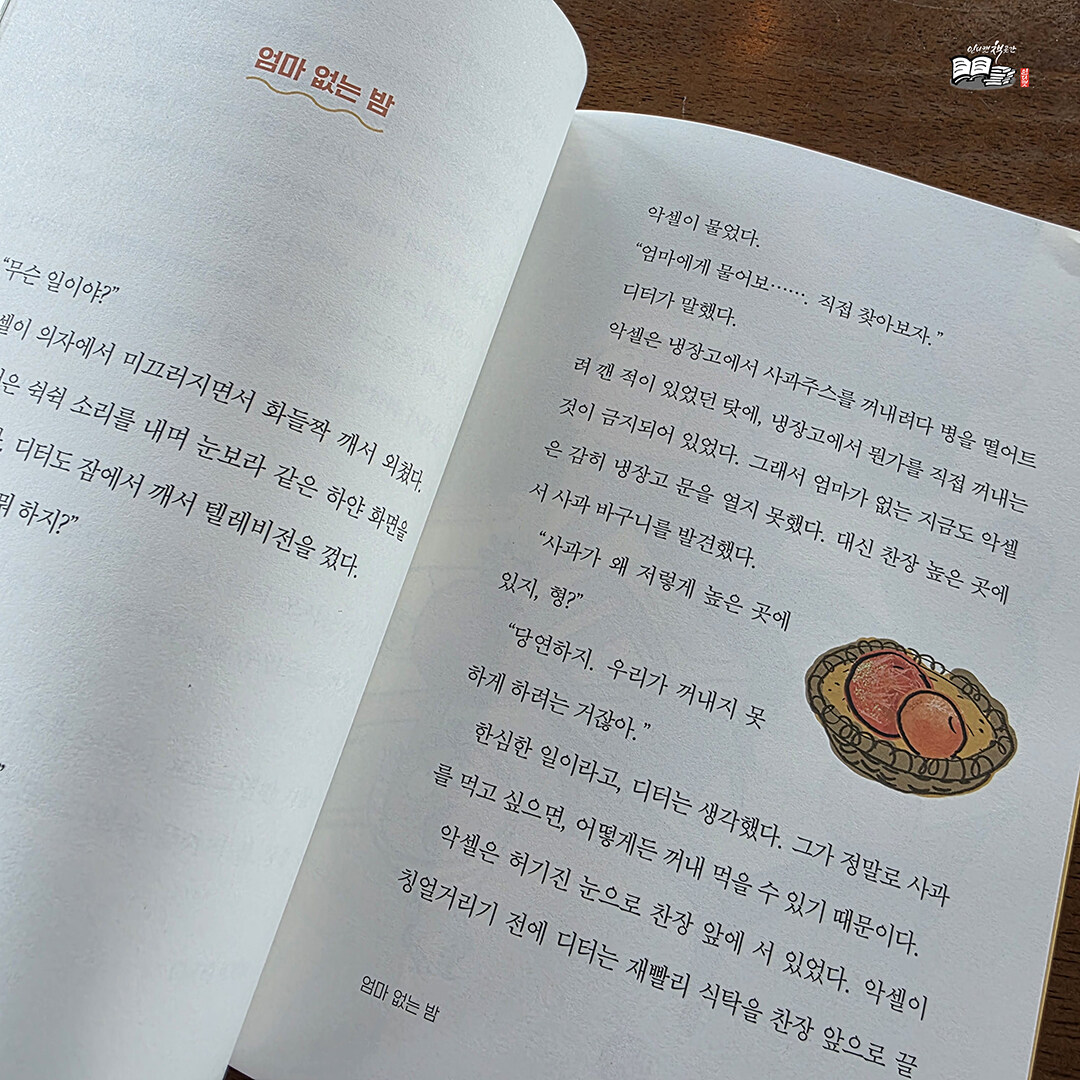 엄마 없는 밤
“무슨 일이야?”
셀이 의자에서 미끄러지면서 화들짝 깨서 외쳤다.
은 쉭쉭 소리를 내며 눈보라 같은 하얀 화면을
디터도 잠에서 깨서 텔레비전을 껐다.
하지?”
악셀이 물었다.
“엄마에게 물어보……. 직접 찾아보자.”
디터가 말했다.
악셀은 냉장고에서 사과주스를 꺼내려다 병을 떨어트
려 깬 적이 있었던 탓에, 냉장고에서 뭔가를 직접 꺼내는
것이 금지되어 있었다. 그래서 엄마가 없는 지금도 악셀
은 감히 냉장고 문을 열지 못했다. 대신 찬장 높은 곳에
서 사과 바구니를 발견했다.
“사과가 왜 저렇게 높은 곳에
있지, 형?”
“당연하지. 우리가 꺼내지 못
하게 하려는 거잖아.”
한심한 일이라고, 디터는 생각했다. 그가 정말로 사과
를 먹고 싶으면, 어떻게든 꺼내 먹을 수 있기 때문이다.
악셀은 허기진 눈으로 찬장 앞에 서 있었다. 악셀이
칭얼거리기 전에 디터는 재빨리 식탁을 찬장 앞으로 끌
엄마 없는 밤